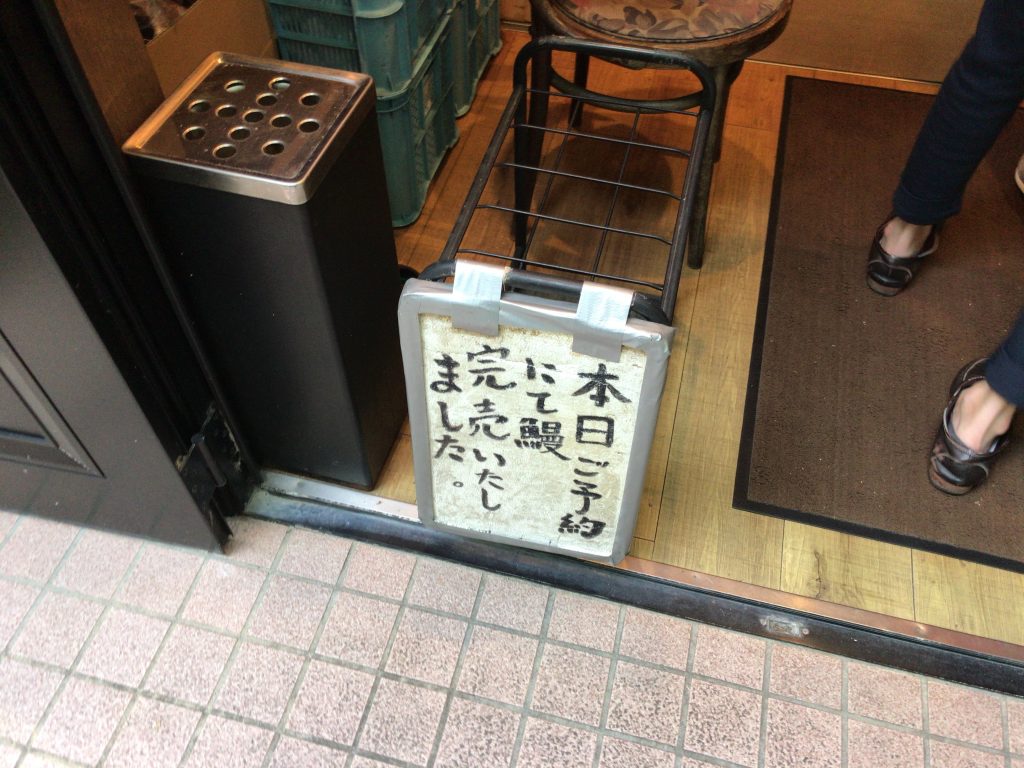 本日ご予約
にて鰻
完売いたし
ました。